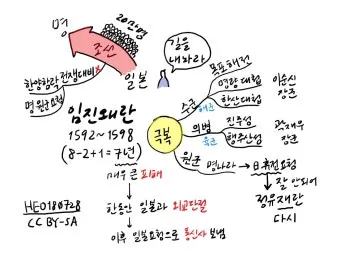 명
20만명
조선
길을
내놔라
일본
한양함락 전쟁대비X
명 원군요청
임진왜란
1592~1598
(8-2+1=7년)
매우 큰 피해
HE0180728
CC BY-SA
한동안 일본과 외교단절
이후 일본요청으로 통신사 보냄
극복
수군
해군
옥포해전
명량대첩
한산대첩
이순신
장군
의병
육군
진주성
행주산성
곽재우
장군
원군
명나라
日 휴전요청
잘 안되어
정유재란
다시